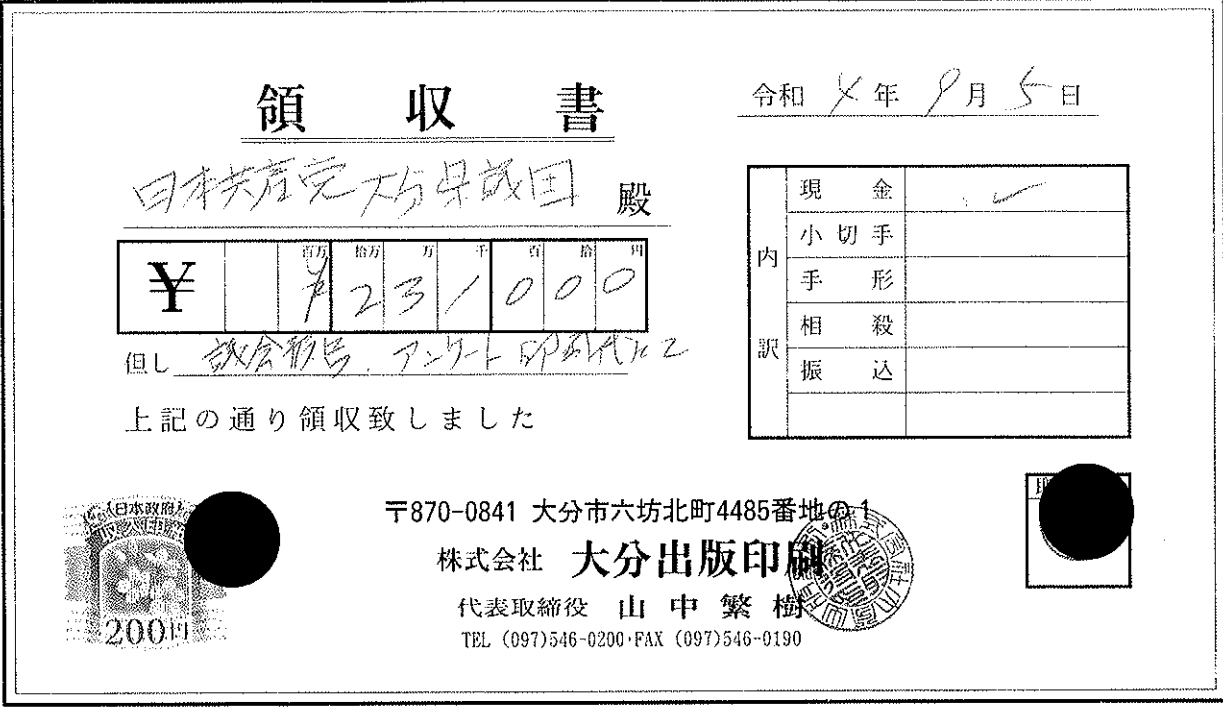 領収書
令和 4年 9月 5日
日本共産党大分県議団 殿
百万 拾万 万 千 百 拾 円
¥ ¥231000
但し 議会報告、アンケート印刷代として
上記の通り領収致しました
内訳
現金 ✓
小切手
手形
相殺
振込
日本政府
収入印紙
200円
〒870-0841 大分市六坊北町4485番地の1
株式会社 大分出版印刷
代表取締役 山中繁樹
TEL (097)546-0200・FAX (097)546-0190